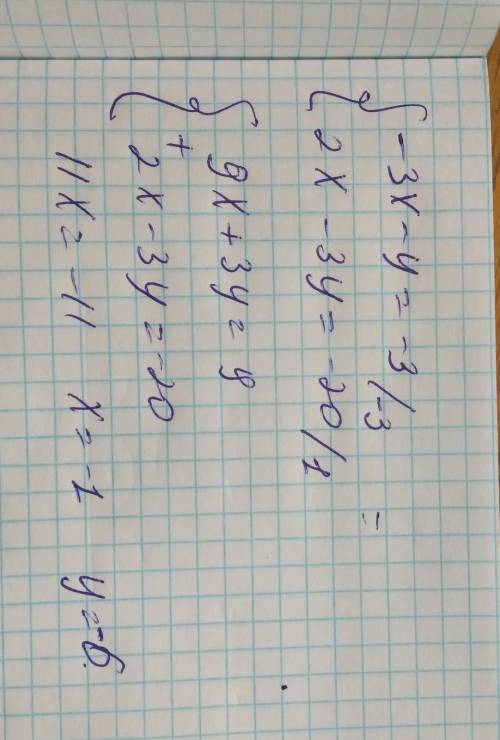 -3x-y=-3/-3
2x-3y=-20/1 =
9x+3y=9
+
2x-3y=-20
11x=-11 x=-1 y=-6.